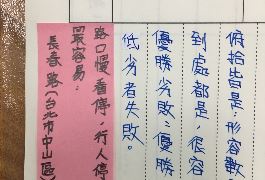 俯拾皆是:形容數
到處都是,很容
優勝劣敗:優勝
低劣者失敗。
路口慢看停,行人停
最容易:
長春路(台北市中山區)